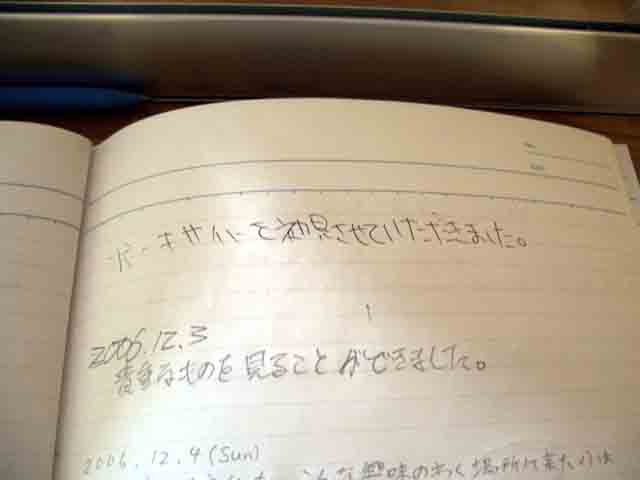 ボーキサイトを初見させていただきました。
2006.12.3
貴重なものを見ることができました。
2006.12.4(Sun)
こんな興味のわく場所は来たのは